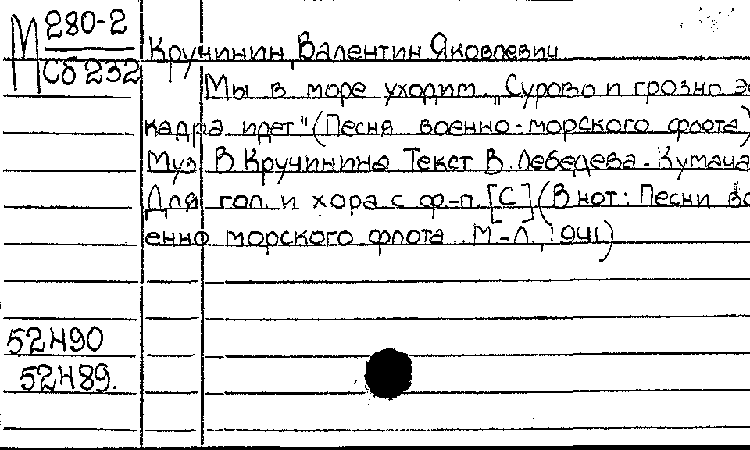 М 280-2
Сб 232
Кручинин, Валентин Яковлевич
Мы в море уходим. "Сурово и грозно эс
кадра идет" (Песня военно-морского флота)
Муз В Кручинина Текст В. Лебедева-Кумача
Для гол. и хора с ф-п. [С] (В нот: Песни во
енно морского флота. М-Л, 1941)
52Н90
52Н89.